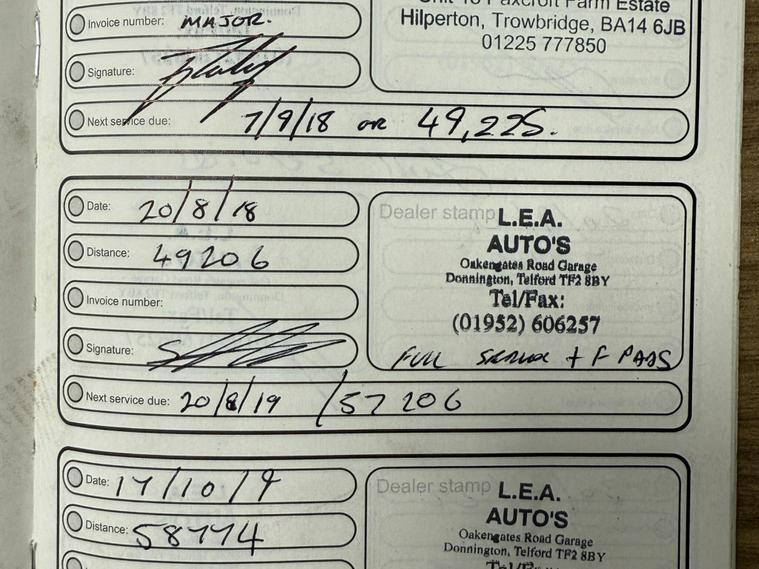 Invoice number: MAJOR.
Farm Estate
Hilperton, Trowbridge, BA14 6JB
01225 777850
Signature:
Next service due: 7/9/18 or 49,225.
Date: 20/8/18
Dealer stamp L.E.A.
AUTO'S
Oakengates Road Garage
Donnington, Telford TF2 8BY
Tel/Fax:
(01952) 606257
Distance: 49206
Invoice number:
Signature:
FULL SERVICE + F PADS
Next service due: 20/8/19 /57206
Date: 17/10/19
Dealer stamp L.E.A.
AUTO'S
Oakengates Road Garage
Donnington, Telford TF2 8BY
Distance: 58774